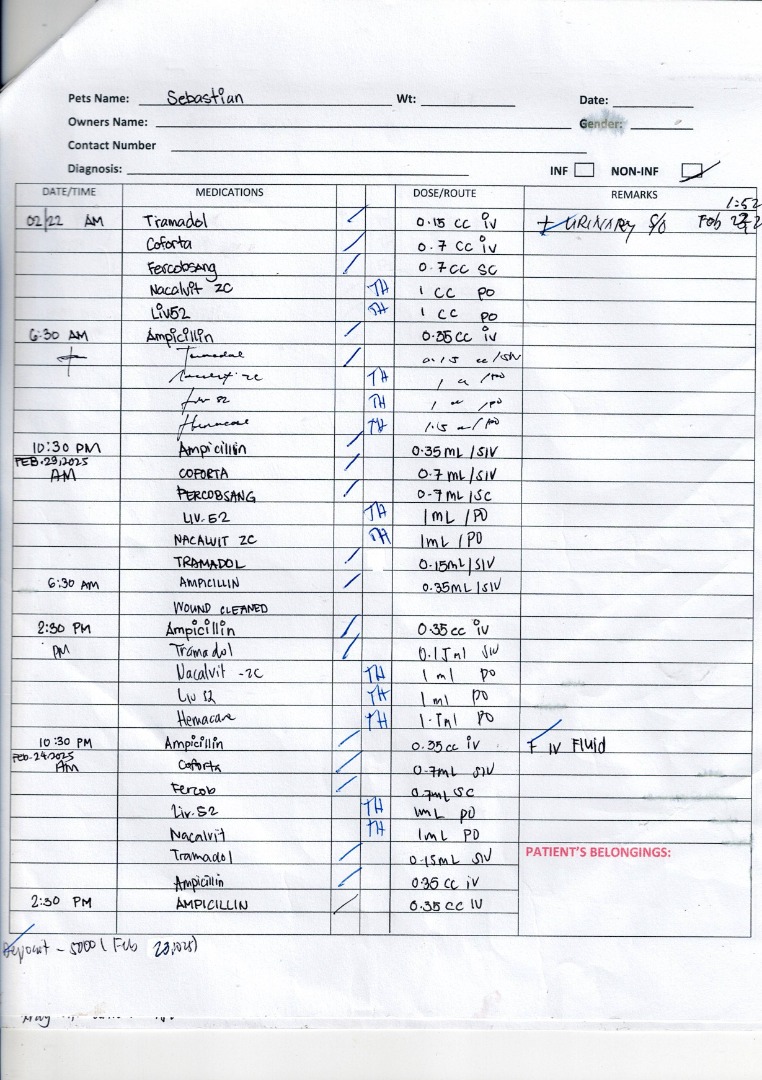 Pets Name: Sebastian Wt: Date:
Owners Name: Gender:
Contact Number
Diagnosis: INF NON-INF
DATE/TIME MEDICATIONS DOSE/ROUTE REMARKS
1:52
02/22 AM Tramadol 0.15 cc iv + URINARY S/O Feb
Coforta 0.7 cc iv
Fercobsang 0.7cc SC
Nacalvit 2C TH 1 cc PO
Liv52 TH 1 CC PO
6:30 AM Ampicillin 0.35 cc iv
Tramadol 0.15 cc/SIV
2c TH 1 cc /PO
Liv 52 TH 1 cc /PO
Hemacare TH 1.5 cc/PO
10:30 PM Ampicillin 0.35 mL/SIV
FEB.23,2025
AM COFORTA 0.7 mL/SIV
PERCOBSANG 0.7mL/SC
LIV.52 TH 1mL/PO
NACALVIT 2C TH 1mL/PO
TRAMADOL 0.15mL/SIV
6:30 AM AMPICILLIN 0.35mL/SIV
WOUND CLEANED
2:30 PM Ampicillin 0.35 cc iv
PM Tramadol 0.15ml SIV
Nacalvit -2C TH 1 ml PO
Liv 52 TH 1 ml PO
Hemacare TH 1.5ml PO
10:30 PM Ampicillin 0.35cc iv IV Fluid
Feb.24.2025
AM Coforta 0.7mL SIV
Fercob 0.7mL SC
Liv.52 TH 1mL PO
Nacalvit TH 1mL PO
Tramadol 0.15mL SIV
PATIENT'S BELONGINGS:
Ampicillin 0.35 cc iv
2:30 PM AMPICILLIN 0.35 cc IV
Deposit - 5000 (Feb 23,2025)